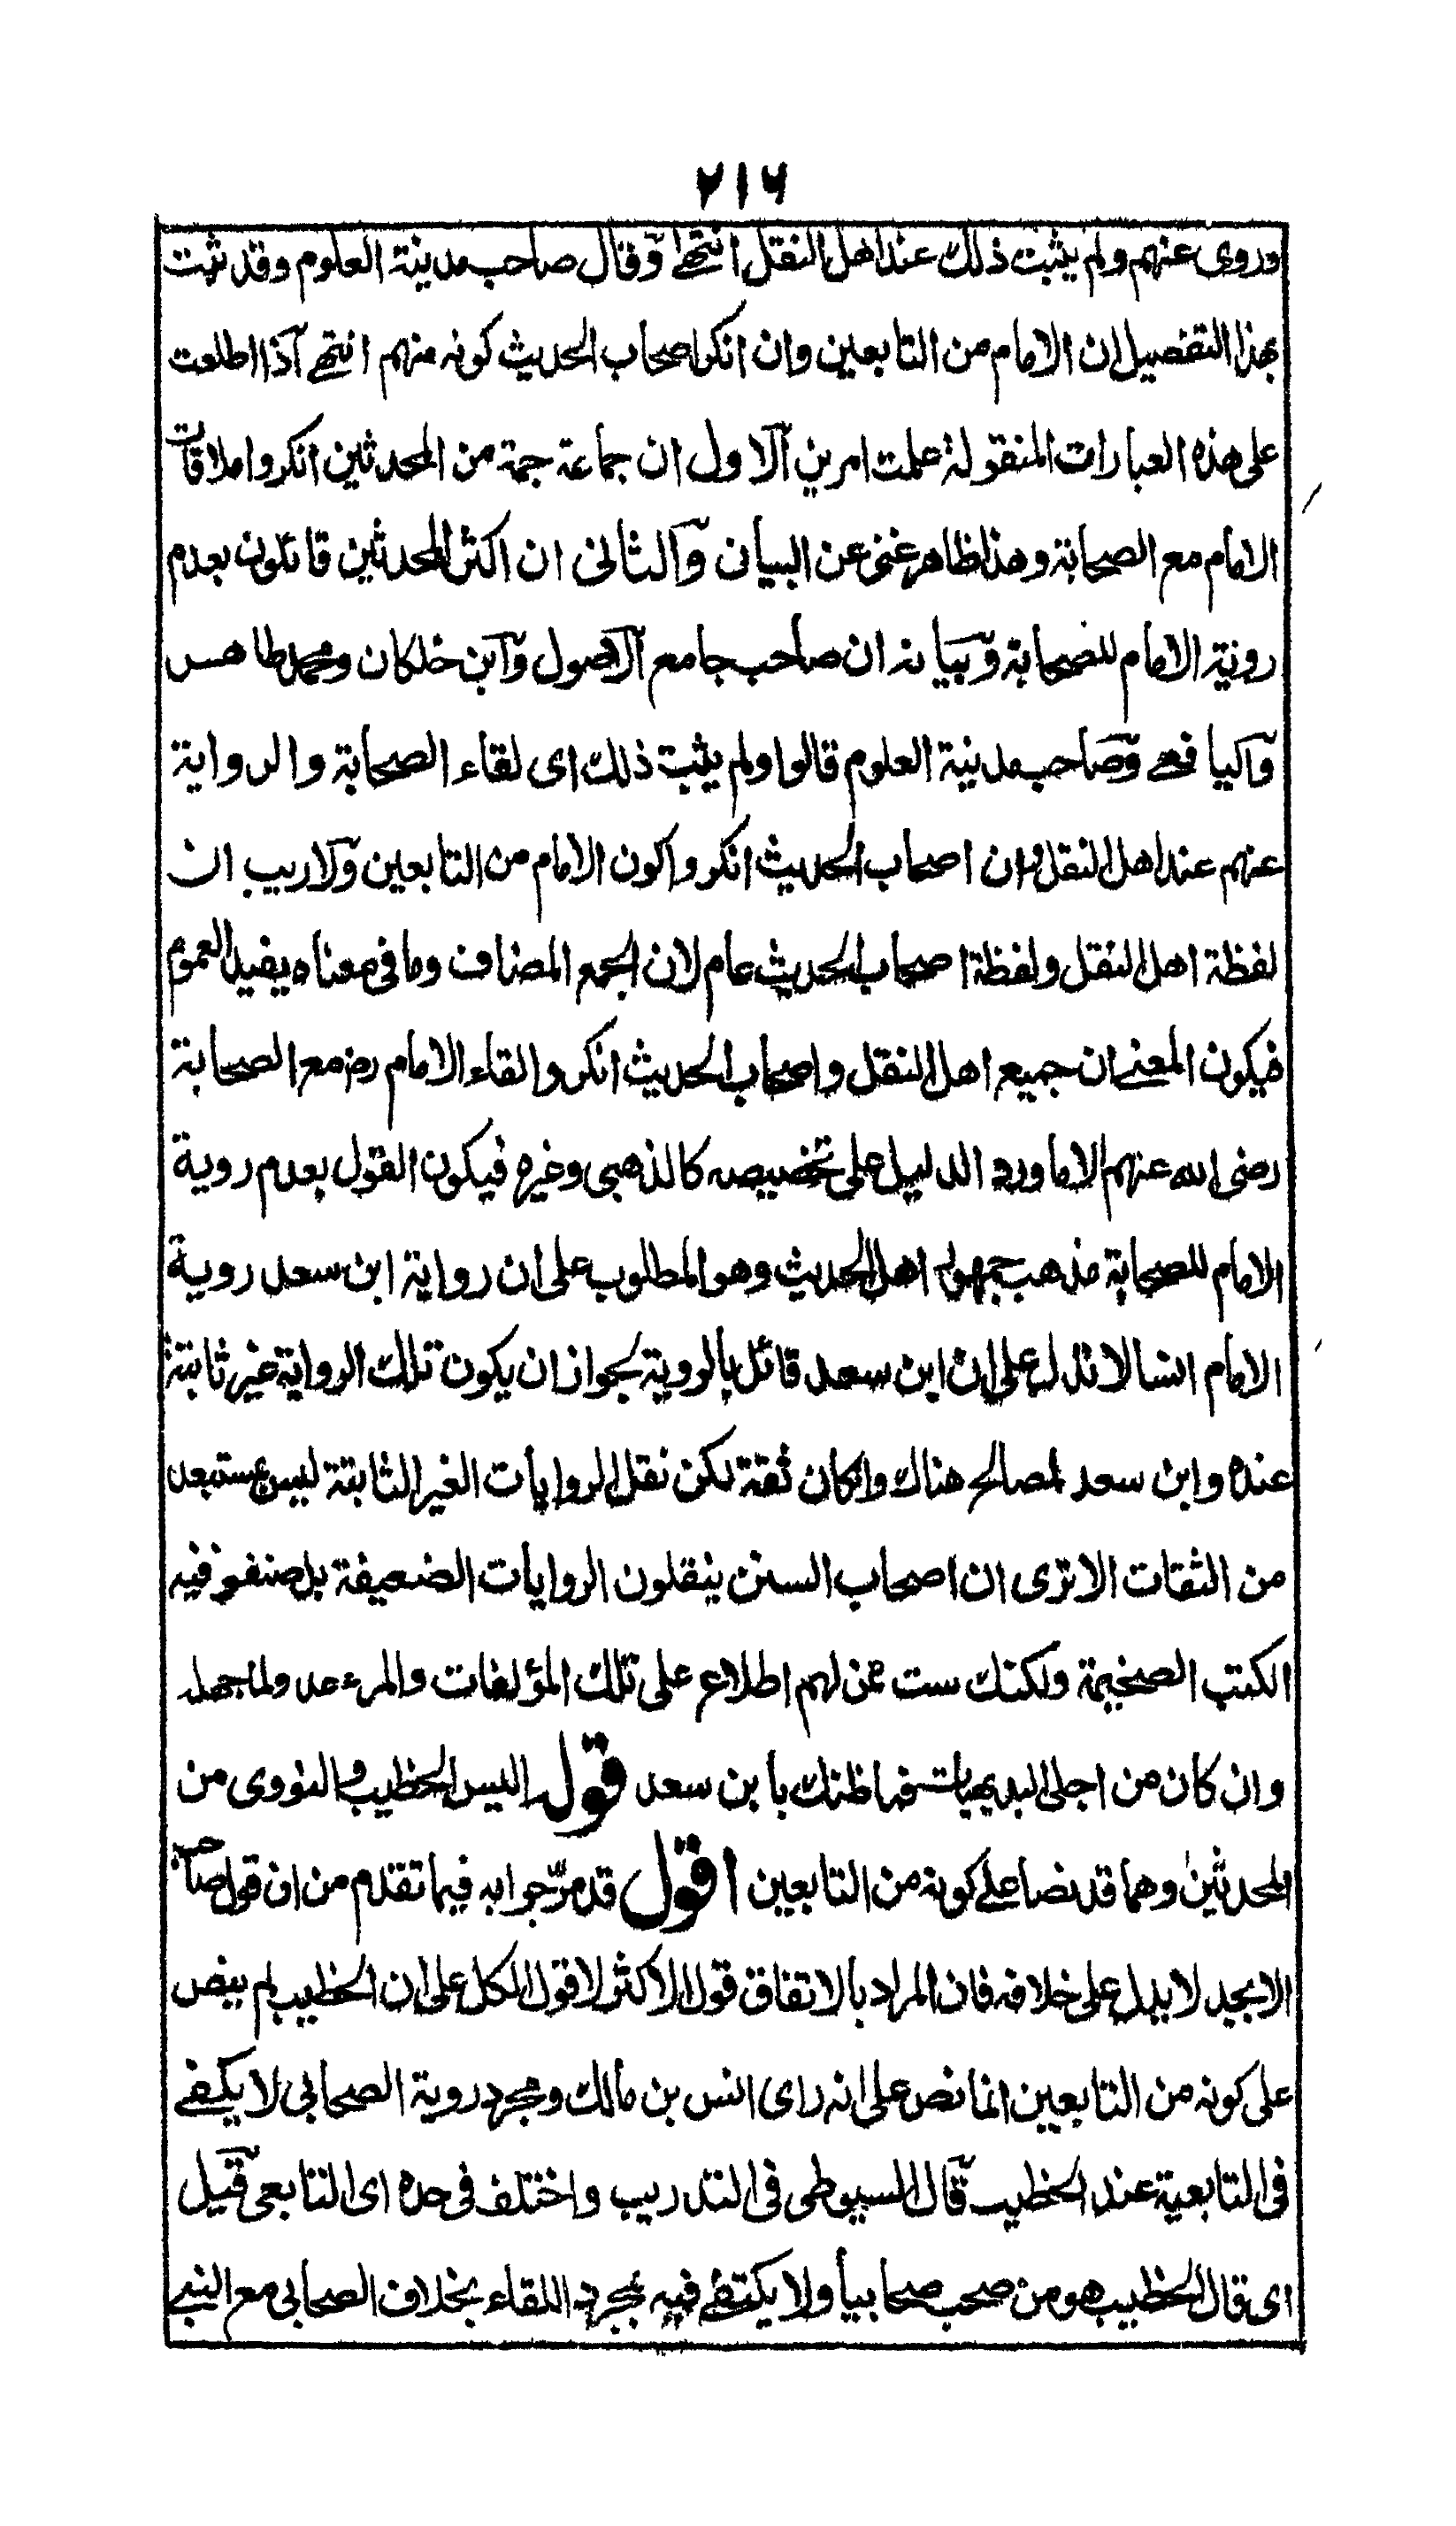 ٢١٦
وروى عنهم ولم يثبت ذلك عند اهل النقل انتهى وقال صاحب مدينة العلوم وقد ثبت
بهذا التفصيل ان الامام من التابعين وان انكر اصحاب الحديث كونه منهم انتهى اذا اطلعت
على هذه العبارات المنقولة علمت امرين الاول ان جماعة جمة من المحدثين انكروا ملاقات
الامام مع الصحابة وهذا ظاهر غني عن البيان والثاني ان اكثر المحدثين قائلون بعدم
روية الامام للصحابة وبيانه ان صاحب جامع الاصول وابن خلكان ومحمد طاهر
واليافعي وصاحب مدينة العلوم قالوا ولم يثبت ذلك اى لقاء الصحابة والرواية
عنهم عند اهل النقل وان اصحاب الحديث انكروا كون الامام من التابعين ولا ريب ان
لفظة اهل النقل ولفظة اصحاب الحديث عام لان الجمع المضاف وما في معناه يفيد العموم
فيكون المعنى ان جميع اهل النقل واصحاب الحديث انكروا لقاء الامام رض مع الصحابة
رضى الله عنهم الا ما ورد الدليل على تخصيصه كالذهبى وغيره فيكون القول بعدم روية
الامام للصحابة مذهب جمهور اهل الحديث وهو المطلوب على ان رواية ابن سعد روية
الامام انسا لا تدل على ان ابن سعد قائل بالروية لجواز ان يكون تلك الرواية غير ثابتة
عنده وابن سعد لمصالح هناك وان كان ثقة لكن نقل الروايات الغير الثابتة ليس بمستبعد
من الثقات الا ترى ان اصحاب السنن ينقلون الروايات الضعيفة بل صنفو فيه
الكتب الضخيمة ولكنك ست ممن لهم اطلاع على تلك المؤلفات والمرء عدو لما جهله
وان كان من اجلى البديهيات فما ظنك بابن سعد قوله اليس الخطيب والنووى من
المحدثين وهما قد نصا على كونه من التابعين اقول قد مرّ جوابه فيما تقدم من ان قول صاحب
الابجد لا يدل على خلافه فان المراد بالاتفاق قول الاكثر لا قول الكل على ان الخطيب لم ينص
على كونه من التابعين انما نص على انه راى انس بن مالك ومجرد روية الصحابى لا يكفى
فى التابعية عند الخطيب قال السيوطى فى التدريب واختلف فى حده اى التابعى قيل
اى قال الخطيب هو من صحب صحابيا ولا يكتفى فيه بمجرد اللقاء بخلاف الصحابى مع النبى